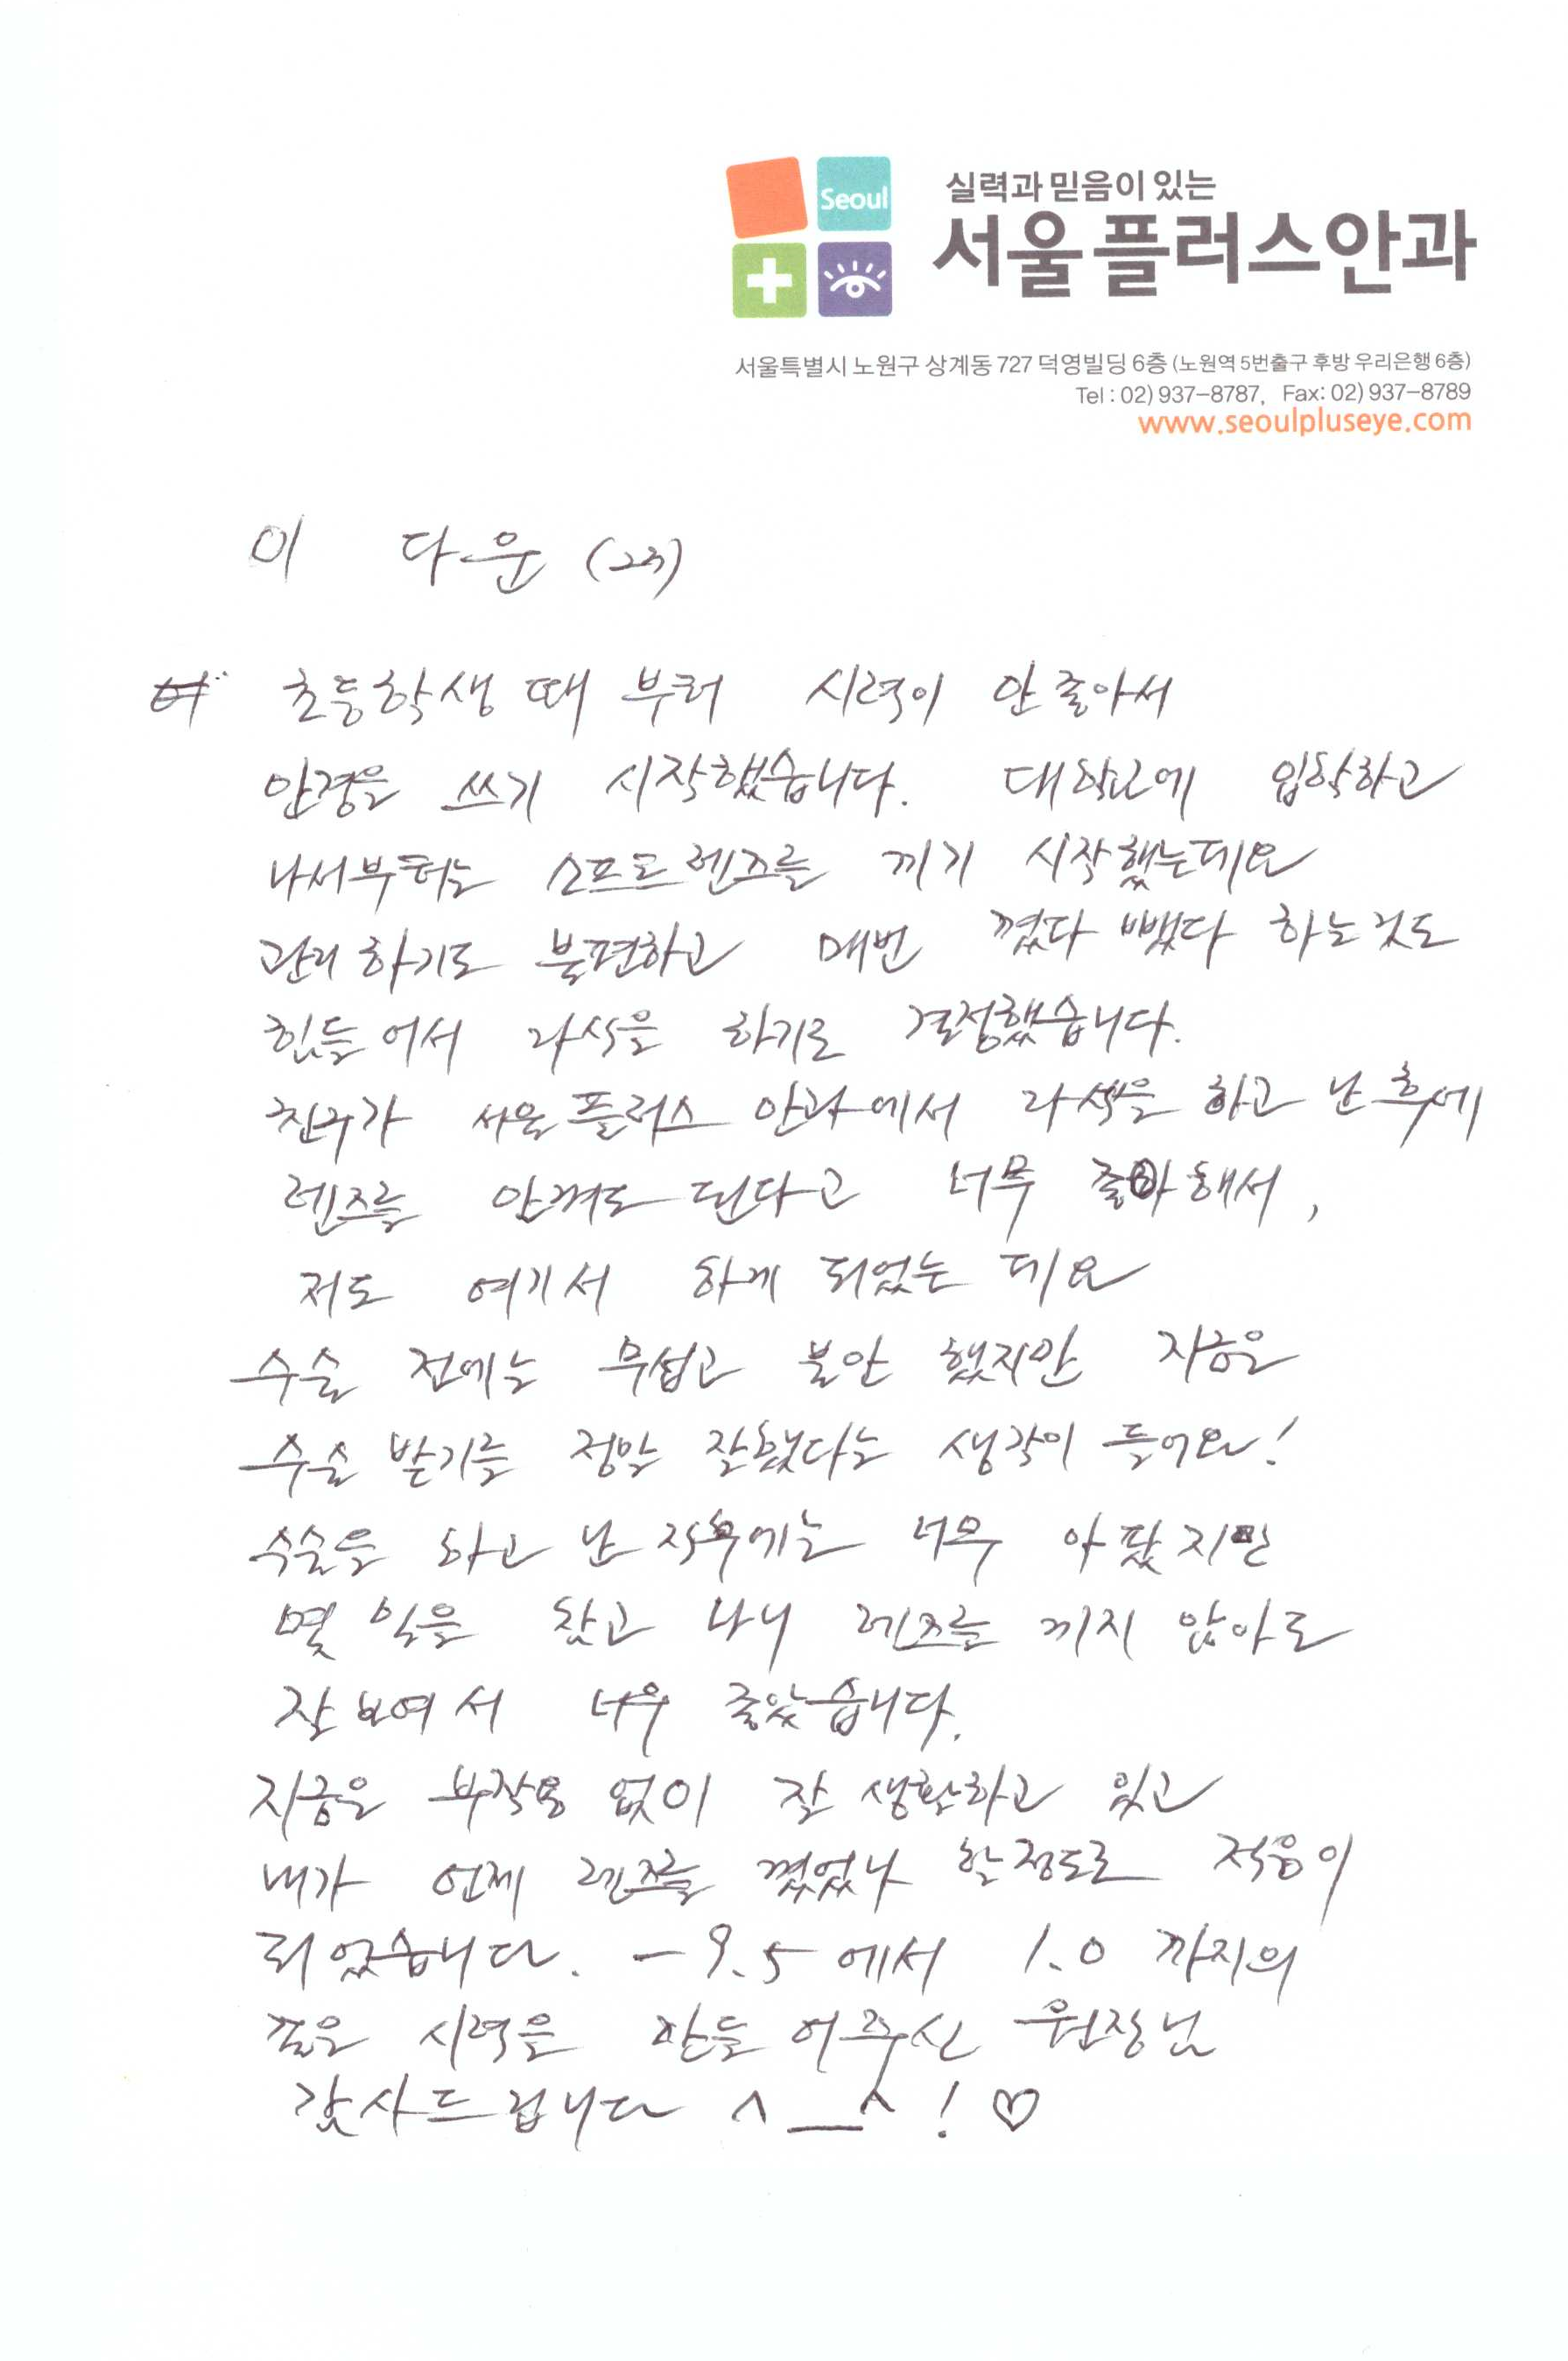 Seoul
실력과 믿음이 있는
서울플러스안과
서울특별시 노원구 상계동 727 덕영빌딩 6층 (노원역 5번출구 후방 우리은행 6층)
Tel : 02) 937-8787, Fax: 02) 937-8789
www.seoulpluseye.com
이 다운 (23)
초등학생 때 부터 시력이 안좋아서
안경을 쓰기 시작했습니다. 대학교에 입학하고
나서부터는 소프트렌즈를 끼기 시작했는데요
관리 하기도 불편하고 매번 꼈다 뺐다 하는것도
힘들어서 라식을 하기로 결정했습니다.
친구가 서울플러스 안과에서 라섹을 하고 난 후에
렌즈를 안껴도 된다고 너무 좋아해서,
저도 여기서 하게 되었는 데요
수술 전에는 무섭고 불안 했지만 지금은
수술 받기를 정말 잘했다는 생각이 들어요!
수술을 하고 난 직후에는 너무 아팠지만
몇 일을 참고 나니 렌즈를 끼지 않아도
잘보여서 너무 좋았습니다.
지금은 부작용 없이 잘 생활하고 있고
내가 언제 렌즈를 꼈었나 할정도로 적응이
되었습니다. -9.5에서 1.0 까지의
꿈은 시력을 만들어주신 원장님
감사드립니다 ^__^ ! ♡